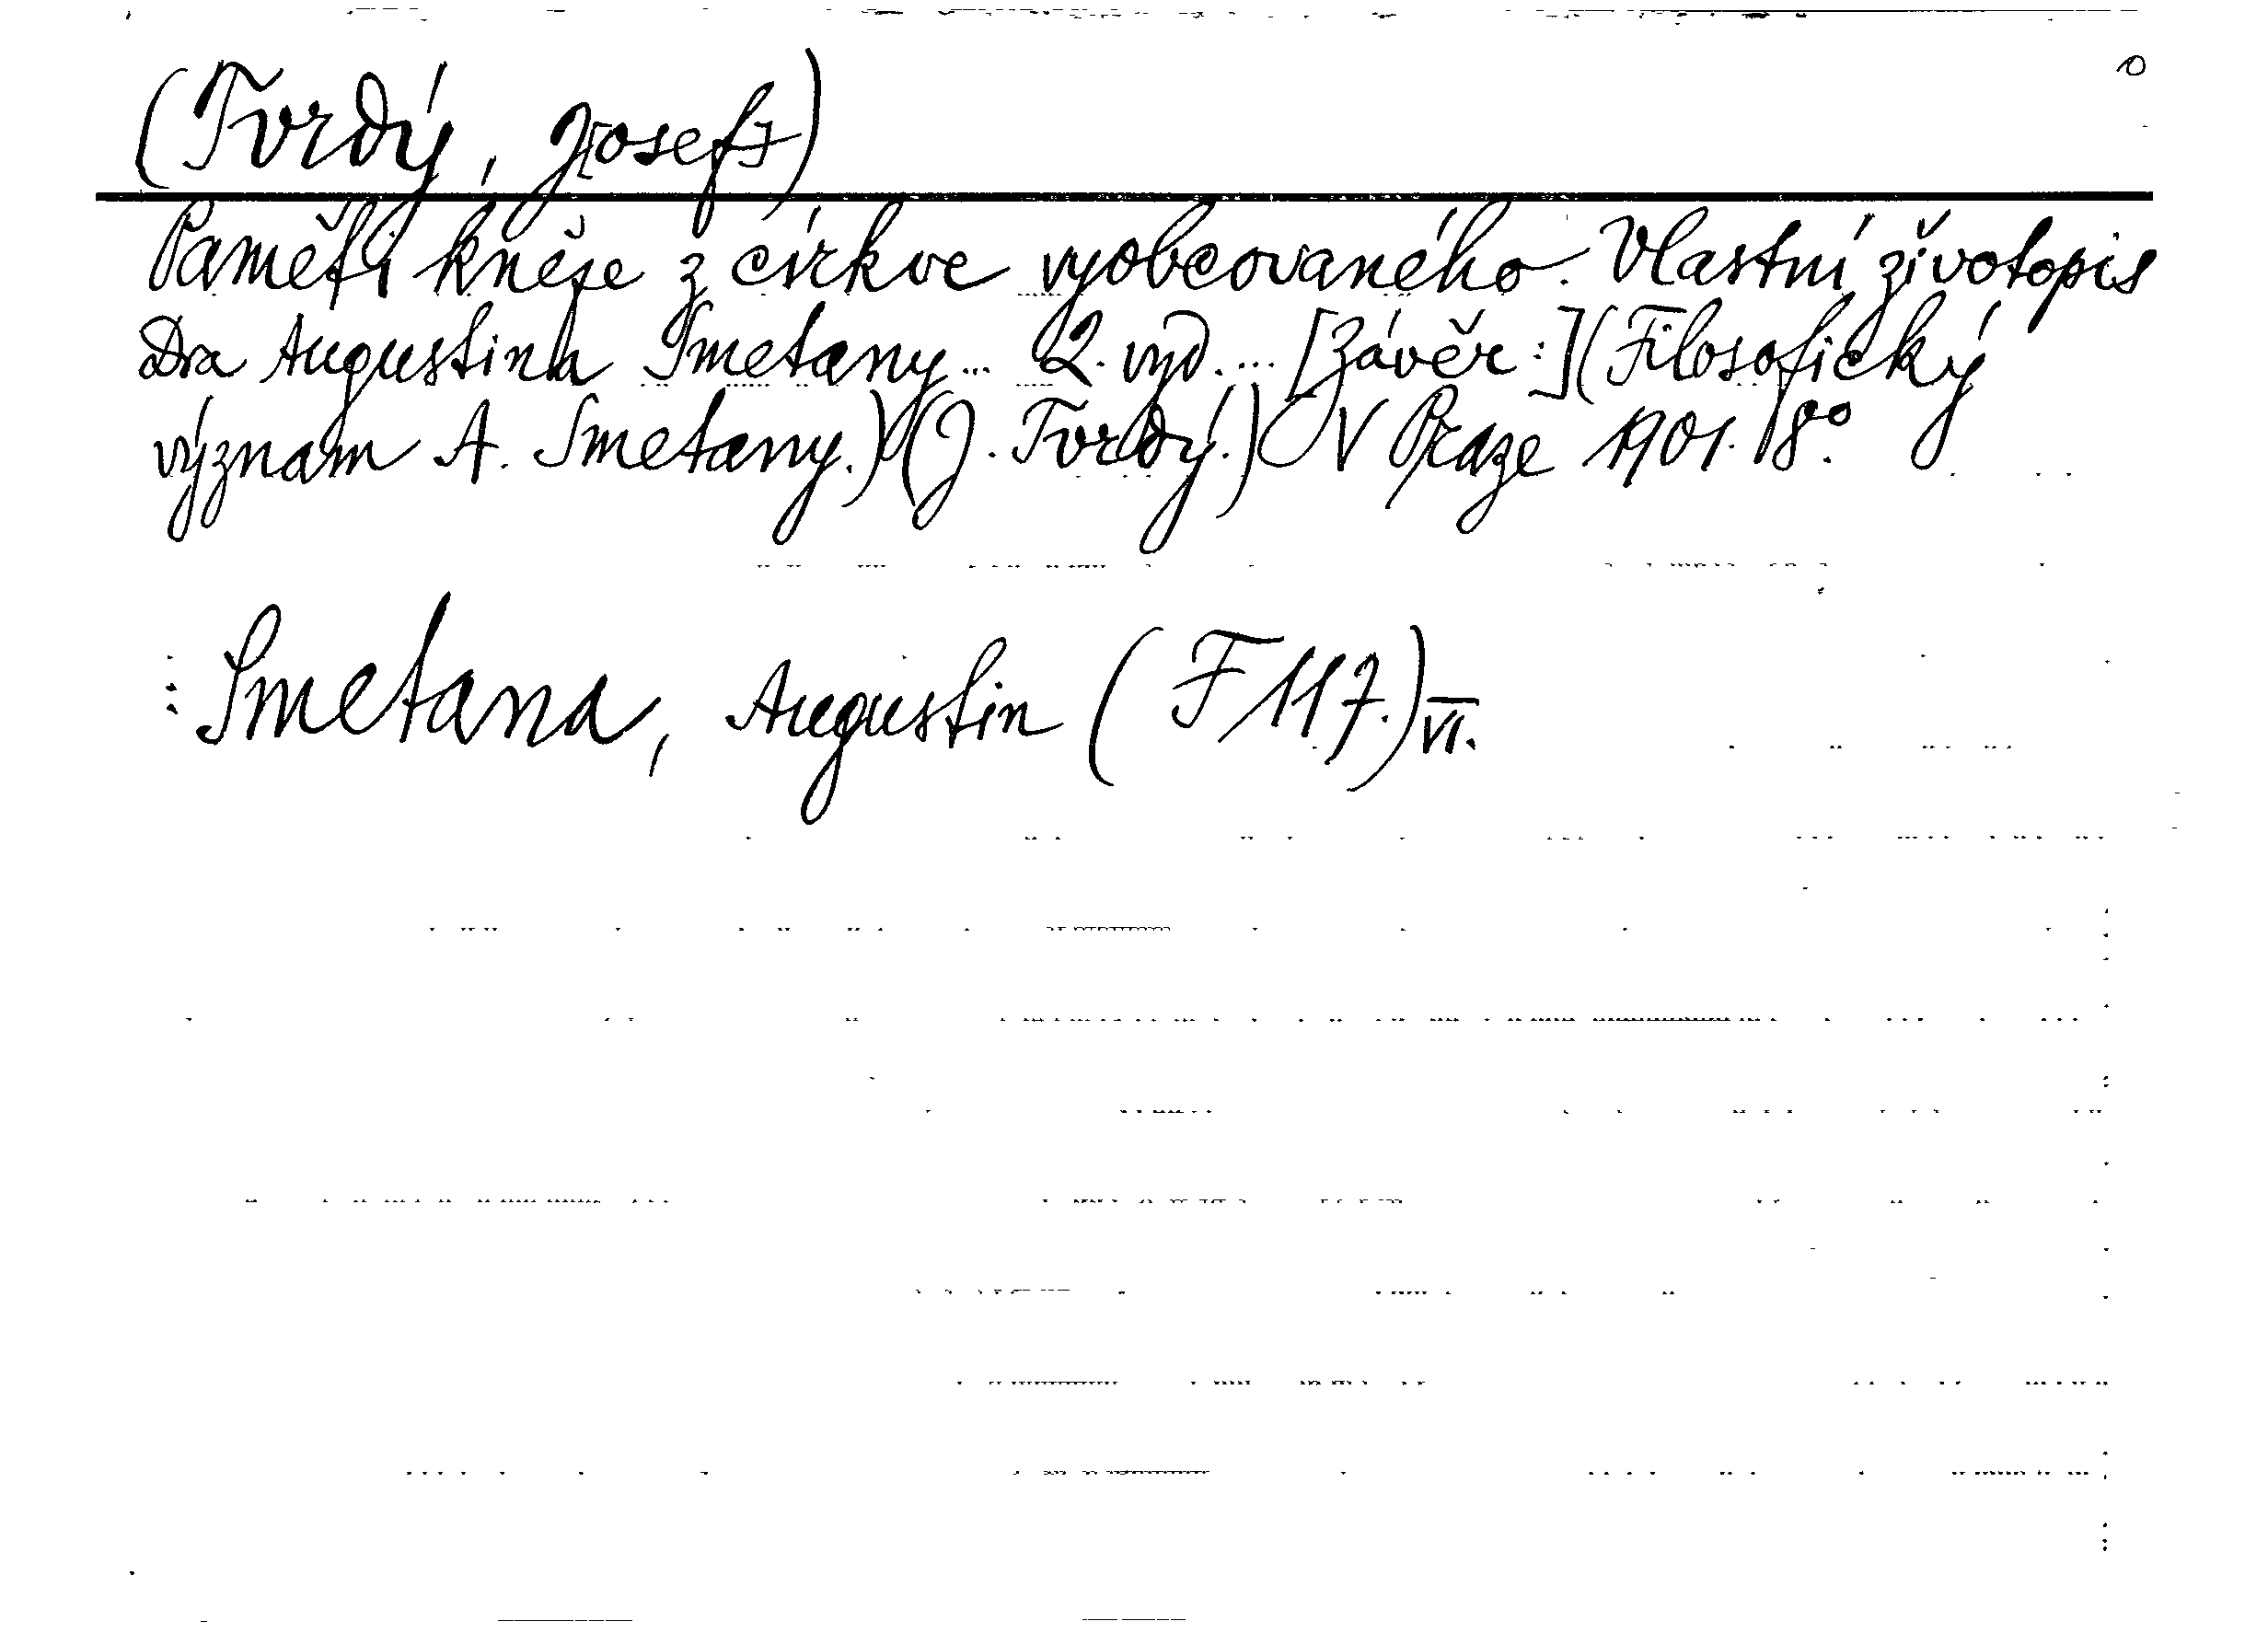 (Tvrdý, J[osef])
Paměti kněze z církve vyobcovaného. Vlastní životopis
Dra Augustina Smetany... 2. vyd.... [Závěr:] (Filosofický
význam A. Smetany.) (J. Tvrdý.) V Praze 1901. 8°.
: Smetana, Augustin (F 117.) VI.